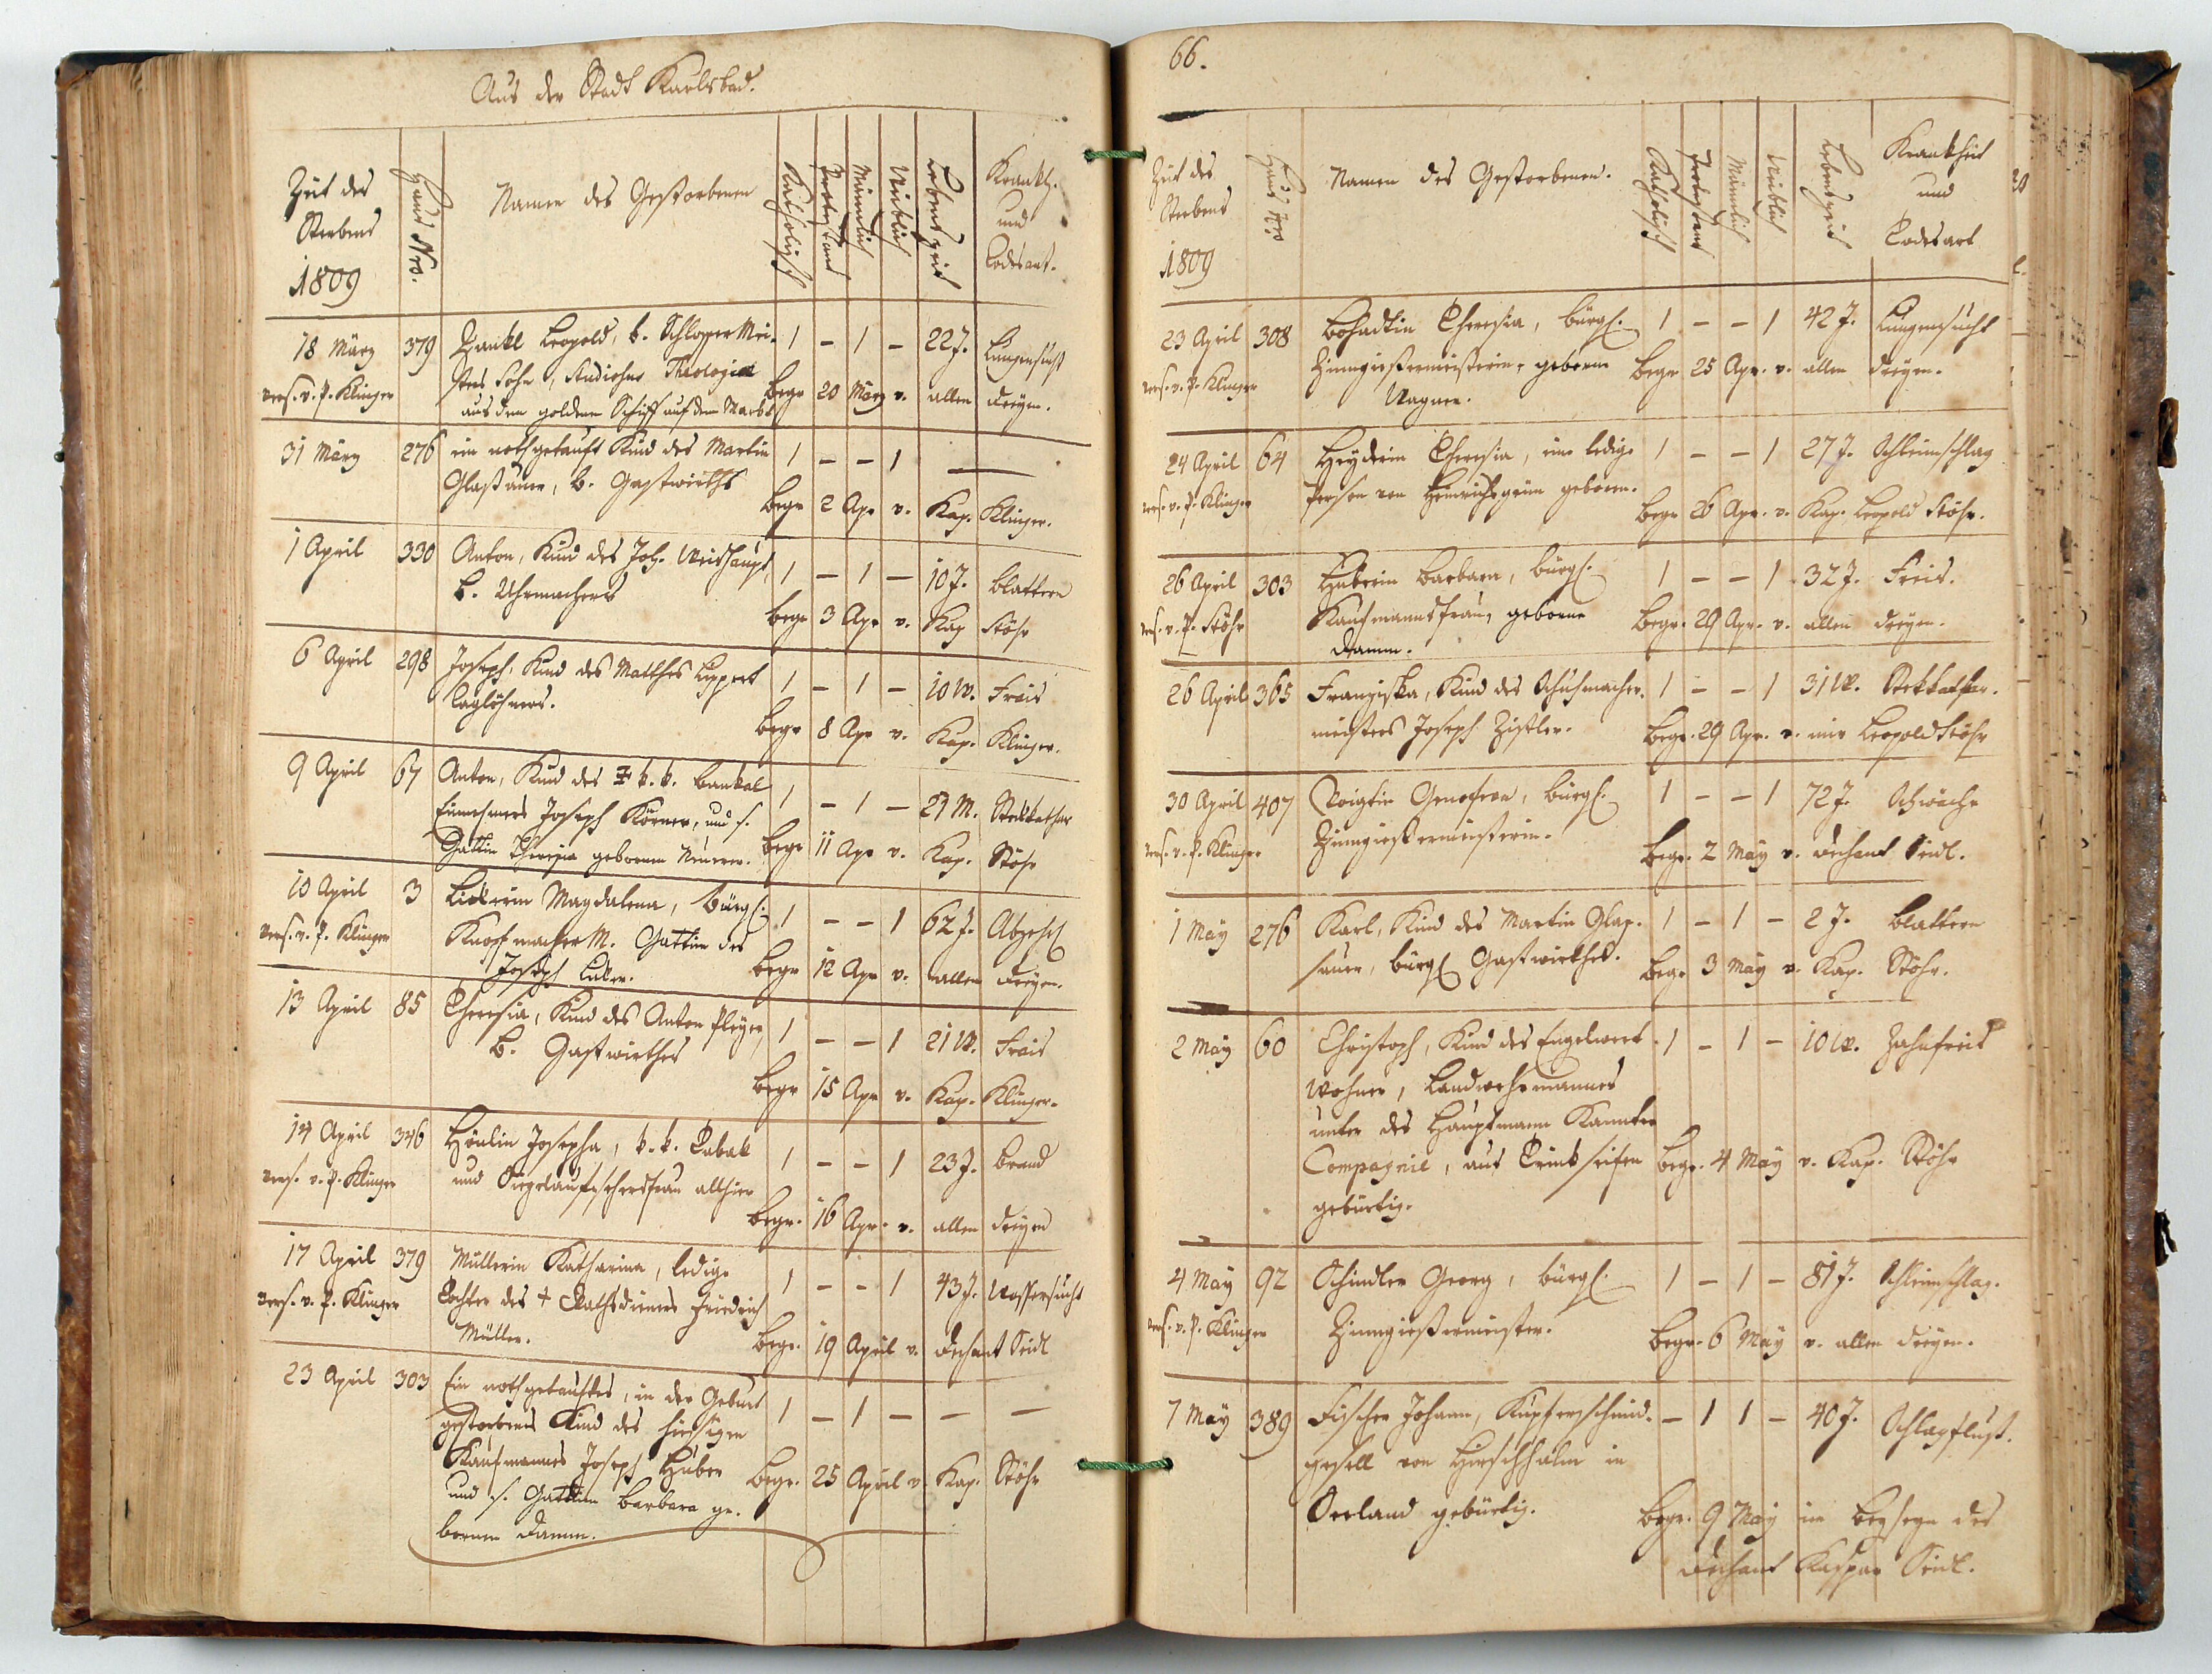 Aus der Stadt Karlsbad.
Zeit des
Sterbens
1809
Haus Nro.
Namen des Gestorbenen
Katholisch
Protestant
Männlich
Weiblich
Lebenszeit
Krankh.
und
Todesart.
18 März 379 Leopold, b. Schlosser Mei- 1 – 1 – 22 J. Lungensucht
vers. v. P. Klinger sters Sohn, Theologiae
aus dem goldenen Schiff auf dem Markt
Begr 20 März v. allen dreyen.
31 März 276 ein nothgetauft Kind des Martin 1 – – 1 —
Glaßauer, b. Gastwirths
Begr 2 Apr v. Kap. Klinger.
1 April 330 Anton, Kind des Joh. Weishaupt, 1 – 1 – 10 J. Blattern
b. Uhrmachers
Begr 3 Apr v. Kap Stöhr
6 April 298 Joseph, Kind des Matthes Lippert 1 – 1 – 10 W. Frais
Taglöhners.
Begr 8 Apr v. Kap. Klinger.
9 April 67 Anton, Kind des k. k. Bankal 1 – 1 – M. Stekkathar
Einnehmers Joseph Körner, und s.
Gattin Theresia gebornen
Begr 11 Apr v. Kap. Stöhr
10 April 3 Magdalena, bürgl. 1 – – 1 62 J. Abzehr
vers. v. P. Klinger Knopfmacher M. Gattin des
Joseph
Begr 12 Apr v. allen dreyen.
13 April 85 Theresia, Kind des Anton Pleyer, 1 – – 1 21 W. Frais
b. Gastwirthes
Begr 15 Apr v. Kap. Klinger.
14 April 346 Josepha, k. k. Tabak 1 – – 1 23 J. Brand
vers. v. P. Klinger und Siegelaufsehersfrau allhier
Begr. 16 Apr. v. allen dreyen
17 April 379 Müllerin Katharina, ledige 1 – – 1 43 J. Wassersucht
vers. v. P. Klinger Tochter des + Rathsdieners Friedrich
Müller.
Begr. 19 April v. Dechant Seidl
23 April 303 Ein nothgetauftes, in der Geburt 1 – 1 – – –
gestorbenes Kind des hiesigen
Kaufmannes Joseph Huber
und s. Gattin Barbara ge-
bornen Damm.
Begr. 25 April v. Kap. Stöhr
66.
Zeit des
Sterbens
1809
Haus Nro
Namen des Gestorbenen.
Katholisch
Protestant
Männlich
Weiblich
Lebenszeit
Krankheit
und
Todesart
23 April 308 Theresia, bürgl. 1 – – 1 42 J. Lungensucht
vers. v. P. Klinger Zinngießermeisterin, geborne
Wagner.
Begr 25 Apr. v. allen dreyen.
24 April 64 Theresia, eine ledige 1 – – 1 27 J. Schleimschlag
vers. v. P. Klinger Person von Heinrichsgrün geboren.
Begr 26 Apr. v. Kap. Leopold Stöhr.
26 April 303 Huberin Barbara, bürgl. 1 – – 1 32 J. Freis.
vers. v. P. Stöhr Kaufmannsfrau, geborne
Damm.
Begr. 29 Apr. v. allen dreyen.
26 April 365 Franziska, Kind des Schuhmacher- 1 – – 1 31 W. Stekkathar.
meisters Joseph Zistler.
Begr. 29 Apr. v. mir Leopold Stöhr
30 April 407 Voigtin Genofeva, bürgl. 1 – – 1 72 J. Schwäche
vers. v. P. Klinger Zinngießermeisterin.
Begr. 2 May v. Dechant Seidl.
1 May 276 Karl, Kind des Martin Glas- 1 – 1 – 2 J. Blattern
sauer, bürgl Gastwirthes.
Begr 3 May v. Kap. Stöhr.
2 May 60 Christoph, Kind des Engelbert 1 – 1 – 10 W. Zahnfreis
Wohner, Landwehrmannes
unter des Hauptmann
Compagnie, aus Trinkseifen
gebürtig.
Begr. 4 May v. Kap. Stöhr
4 May 92 Schindler Georg, bürgl. 1 – 1 – 81 J. Schleimschlag.
vers. v. P. Klinger Zinngießermeister.
Begr. 6 May v. allen dreyen.
7 May 389 Fischer Johann, Kupferschmid- – 1 1 – 40 J. Schlagfluß.
gesell von in
gebürtig.
Begr. 9 May im Beyseyn des
Dechant Kaspar Seidl.